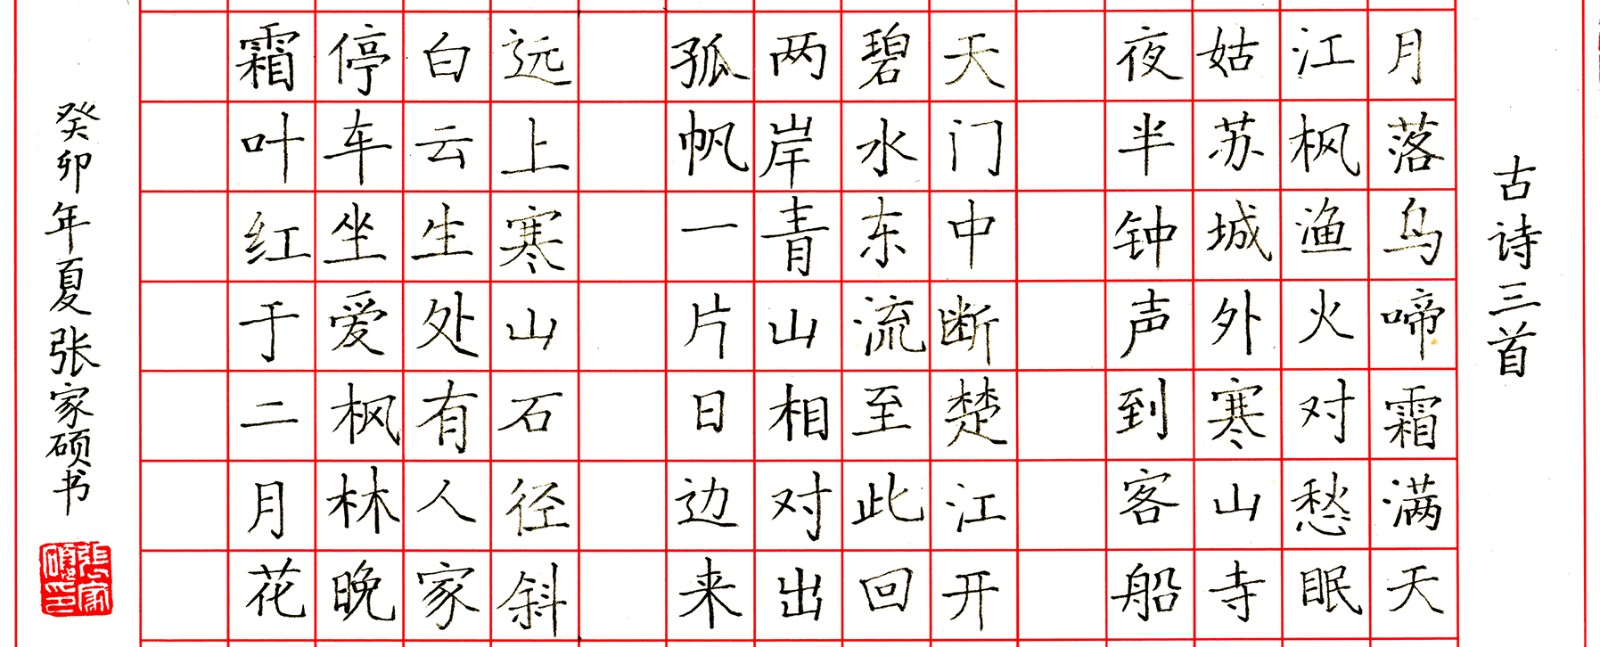 古诗三首
月落乌啼霜满天
江枫渔火对愁眠
姑苏城外寒山寺
夜半钟声到客船
天门中断楚江开
碧水东流至此回
两岸青山相对出
孤帆一片日边来
远上寒山石径斜
白云生处有人家
停车坐爱枫林晚
霜叶红于二月花
癸卯年夏张家硕书
张家硕印